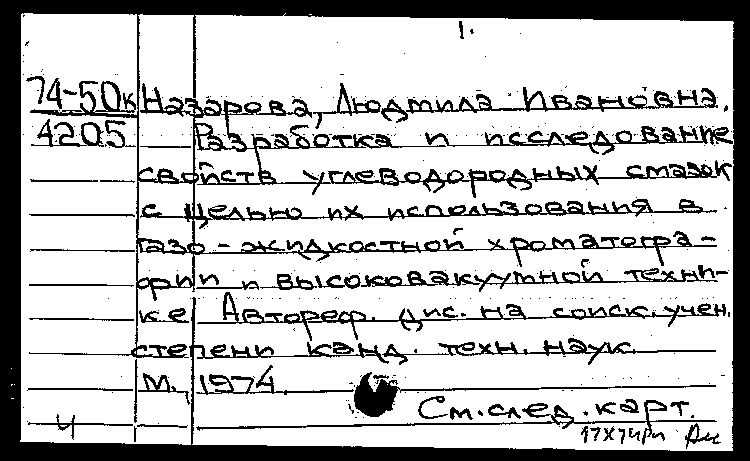 1.
74-50к Назарова, Людмила Ивановна.
4205 Разработка и исследование
свойств углеводородных смазок
с целью их использования в
газо-жидкостной хроматогра-
фии и высоковакуумной техни-
ке. Автореф. дис. на соиск. учен.
степени канд. техн. наук.
М., 1974.
См. след. карт.
Ч